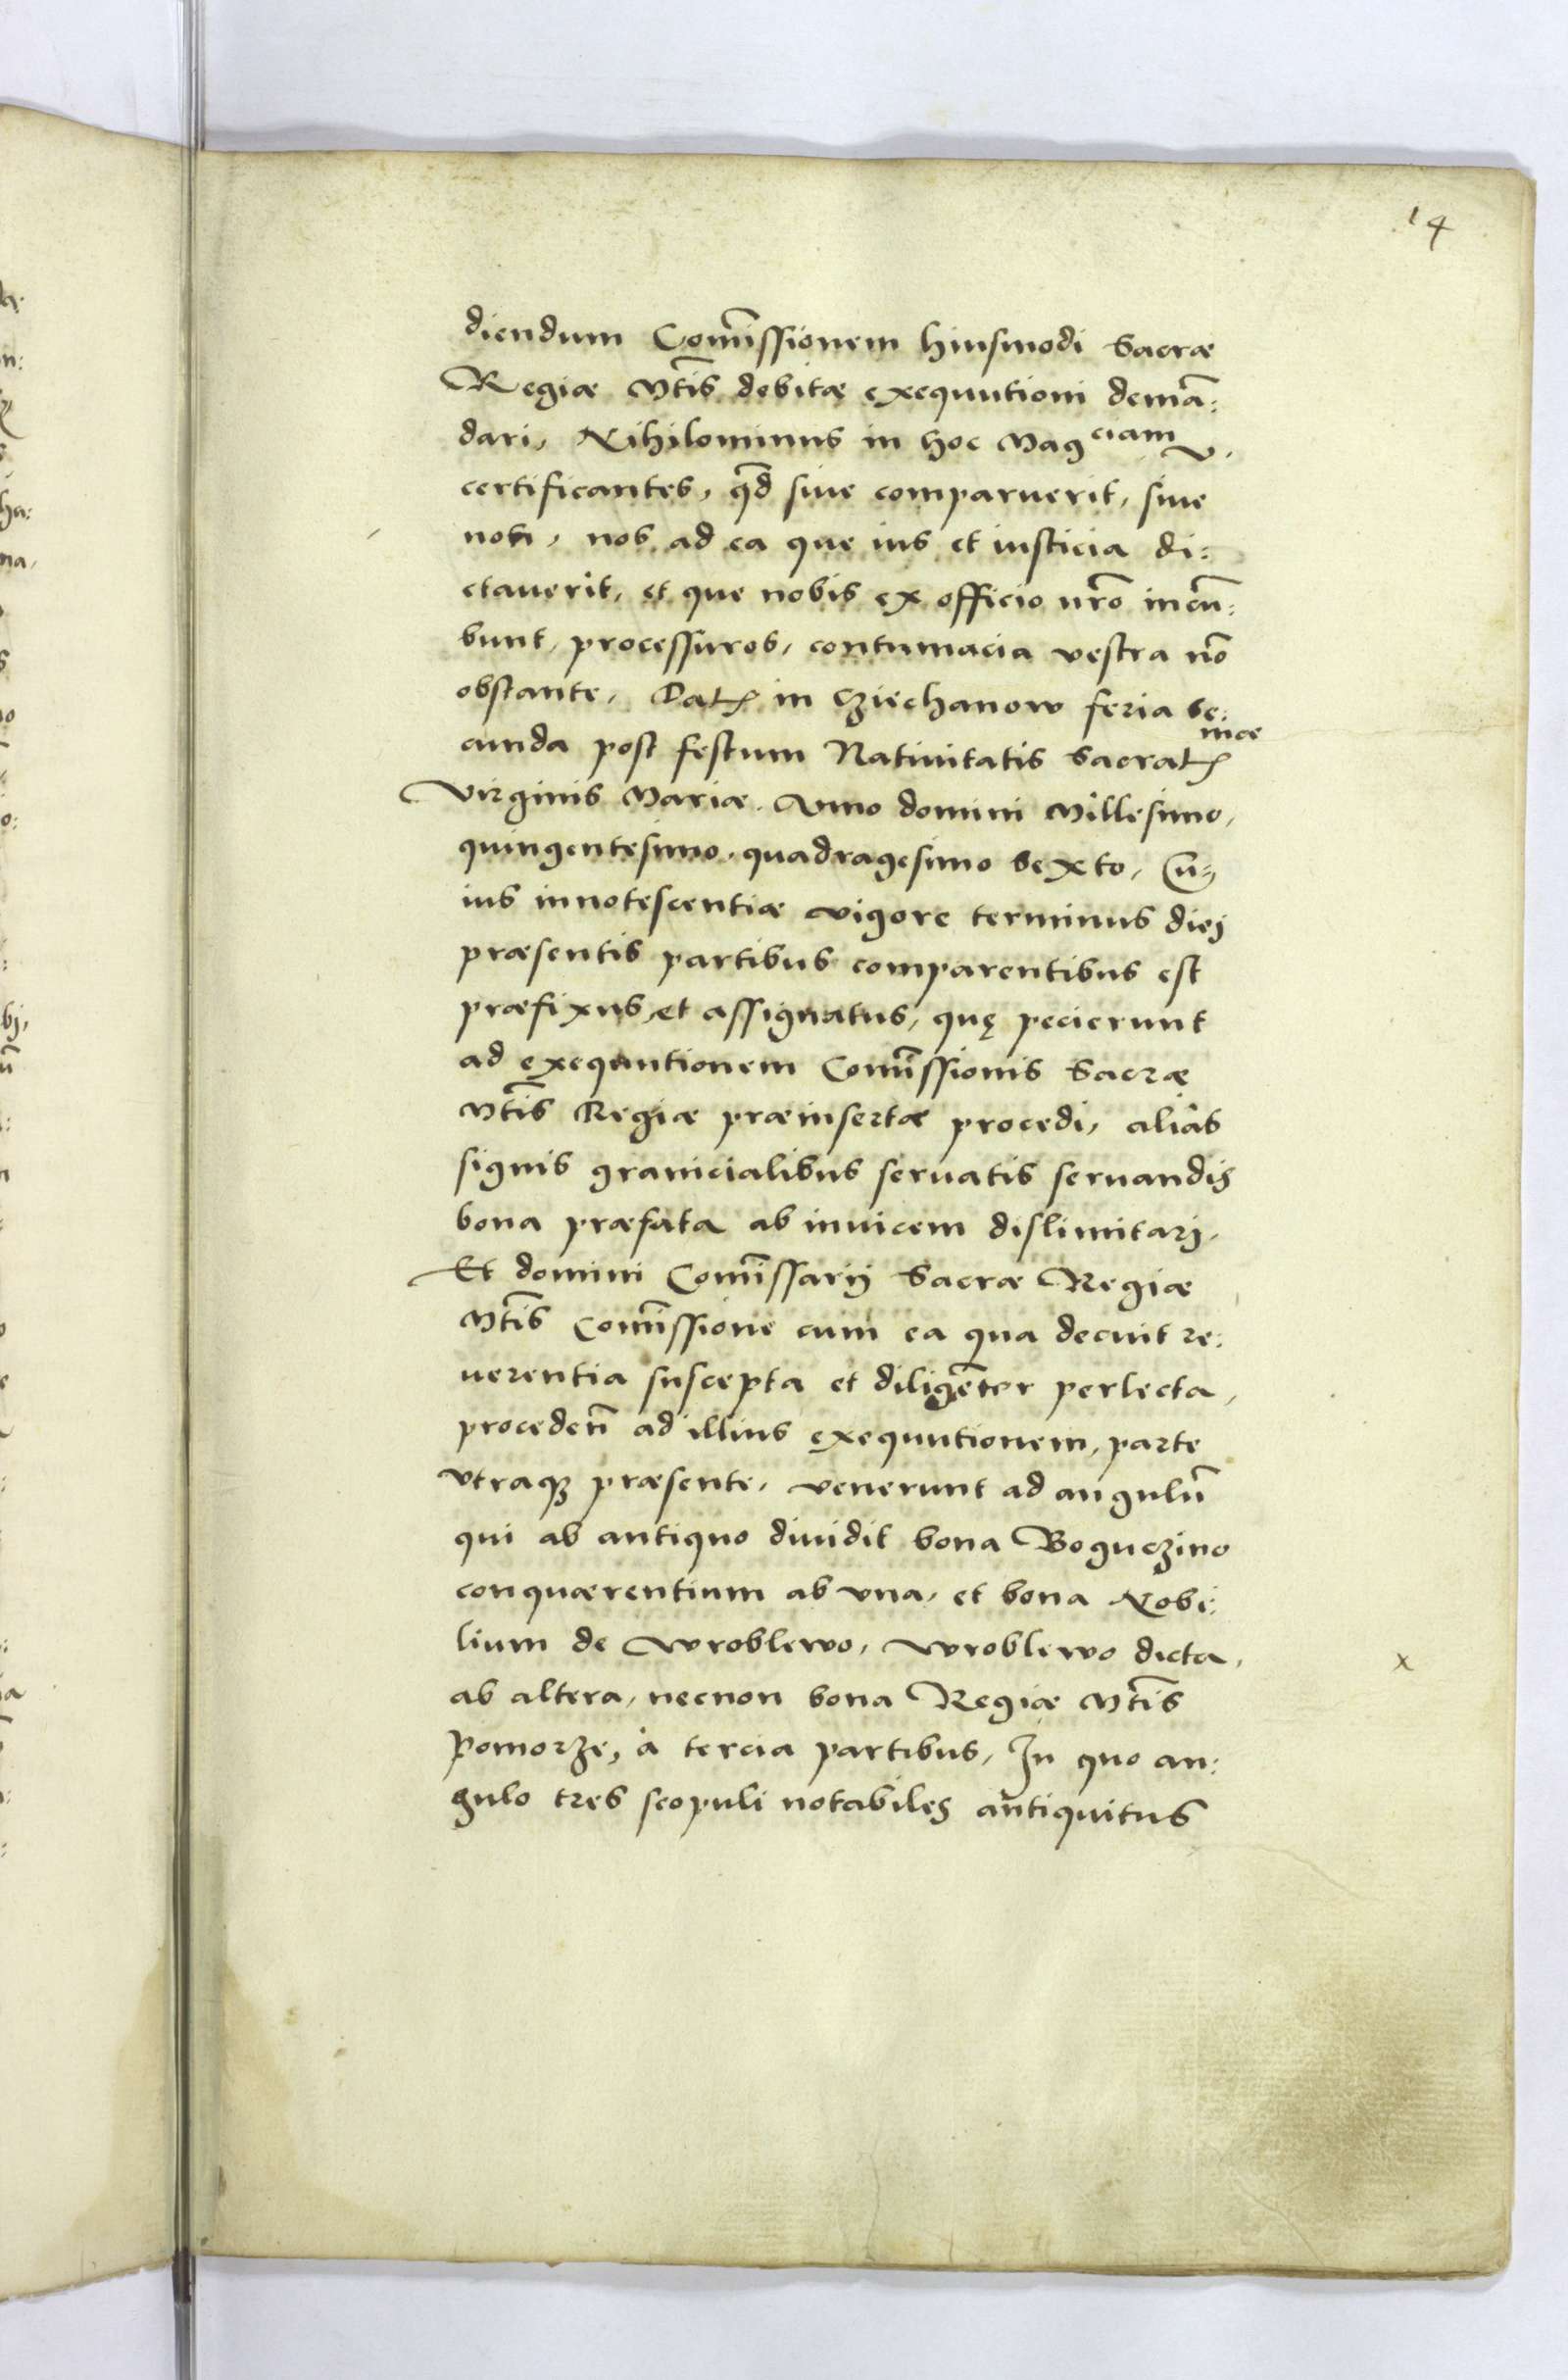 14
diendum Com̃issionem hiusmodi Sacræ
Regiæ Mt̃is debitæ exequutioni demã:
dari, Nihilominus in hoc Mag ciam v.
certificantes, qd̃ siue comparuerit, siue
non, nos ad ea que ius et iusticia di:
ctauerit, et que nobis ex officio nr̃o incũ:
bunt, processuros, contumacia vestra nõ
obstante, Dat in Cziechanow feria Se:
cunda post festum Natiuitatis Sacrat mæ
Virginis Mariæ. Anno domini Millesimo,
quingentesimo, quadragesimo Sexto, Cu=
ius innotescentiæ vigore terminus diei
præsentis partibus comparentibus est
præfixus, et assignatus, quę pecierunt
ad exequutionem Com̃issionis Sacræ
Mt̃is Regiæ præinsertæ procedi, aliàs
signis granicialibus seruatis seruandis
bona præfata ab inuicem dislimitari.
Et domini Com̃issarij Sacræ Regiæ
Mt̃is Com̃issione cum ea qua decuit re:
uerentia suscepta et diligẽter perlecta,
proceden̄ ad illius exequutionem, parte
vtraqꝫ præsente, venerunt ad angulũ
qui ab antiquo diuidit bona Boguczino
conquærentium ab vna, et bona Nobi:
lium de Wroblewo, Wroblewo dicta,
x
ab altera, necnon bona Regiæ Mt̃is
Pomorze, à tercia partibus, In quo an:
gulo tres scopuli notabiles antiquitus